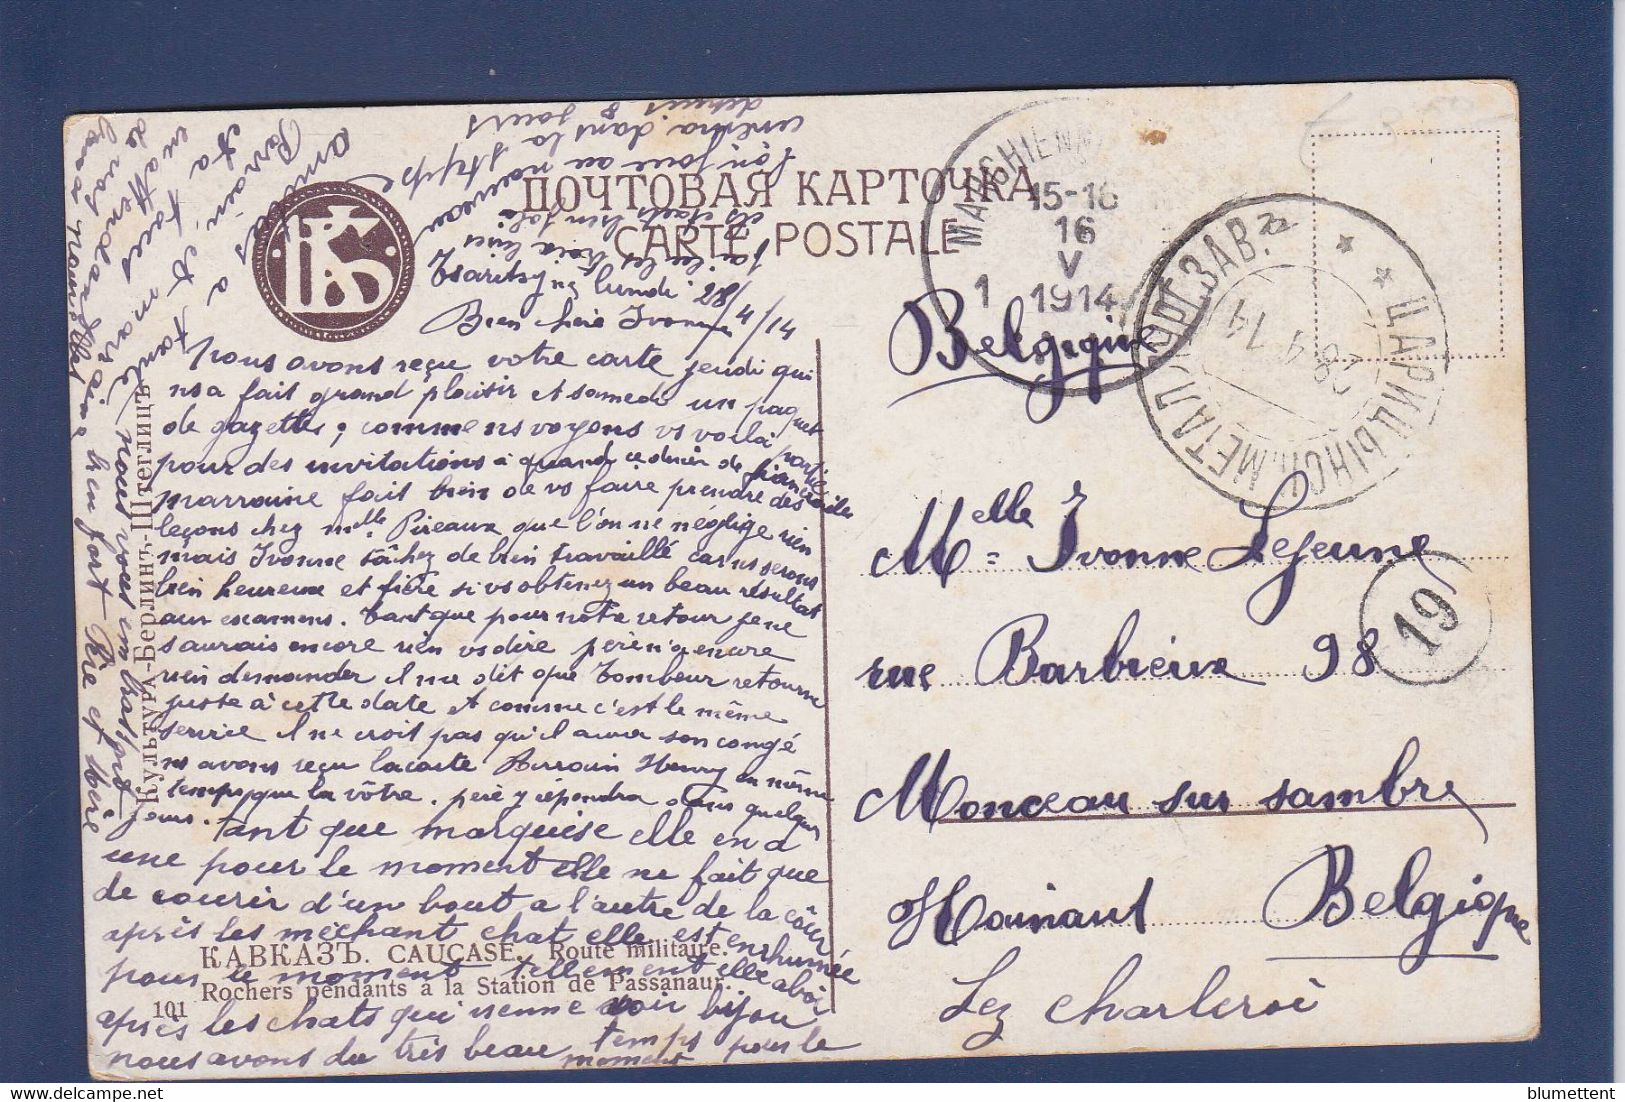 ПОЧТОВАЯ КАРТОЧКА
CARTE POSTALE
Tsaritsyne lundi 28/4/14
Bien chère Yvonne
Nous avons reçu votre carte jeudi qui
ns a fait grand plaisir et samedi un paquet
de gazettes; comme ns voyons vs voilà partie
pour des invitations à quand ce dernier de fiancailles
marraine fait bien de vs faire prendre des
leçons chez Mlle Pireaux que l'on ne néglige rien
mais Yvonne tâchez de bien travaillé car ns serons
bien heureux et fière si vs obtenez un beau résultat
aux examens. Tant que pour notre retour je ne
saurais encore rien vs dire père n'a encore
rien demander il me dit que Tombeur retourne
juste à cette date et comme c'est le même
service il ne croit pas qu'il aura son congé
ns avons reçu la carte Parrain Henry en même
temps que la vôtre. père y répondra dans quelques
jours. tant que marquise elle en a
une pour le moment elle ne fait que
de courir d'un bout a l'autre de la cour
après les méchant chat elle est enrhumée
pour le moment tellement elle aboi
après les chats qui vienne voir bijou
nous avons du très beau temps pour le
moment
l'on joue au nouveau
cinéma dans la steppe
depuis 8 jours
amitiés a
Parrain, et Tante
et a tous, nous vous embrassons
en attendant
de vos
bien fort Père et Mère
КАВКАЗЪ. CAUCASE. Route militaire.
Rochers pendants à la Station de Passanaur.
101
Культура-Берлинъ-Штеглицъ
MARCHIENN
15-16
16
V
1914
1
ЦАРИЦЫНСК. МЕТАЛ ЗАВ.
28 4 14
19
Belgique
Melle Yvonne Lejeune
rue Barbieux 98
Monceau sur sambre
Hainaut Belgique
Lez Charleroi
blumettent